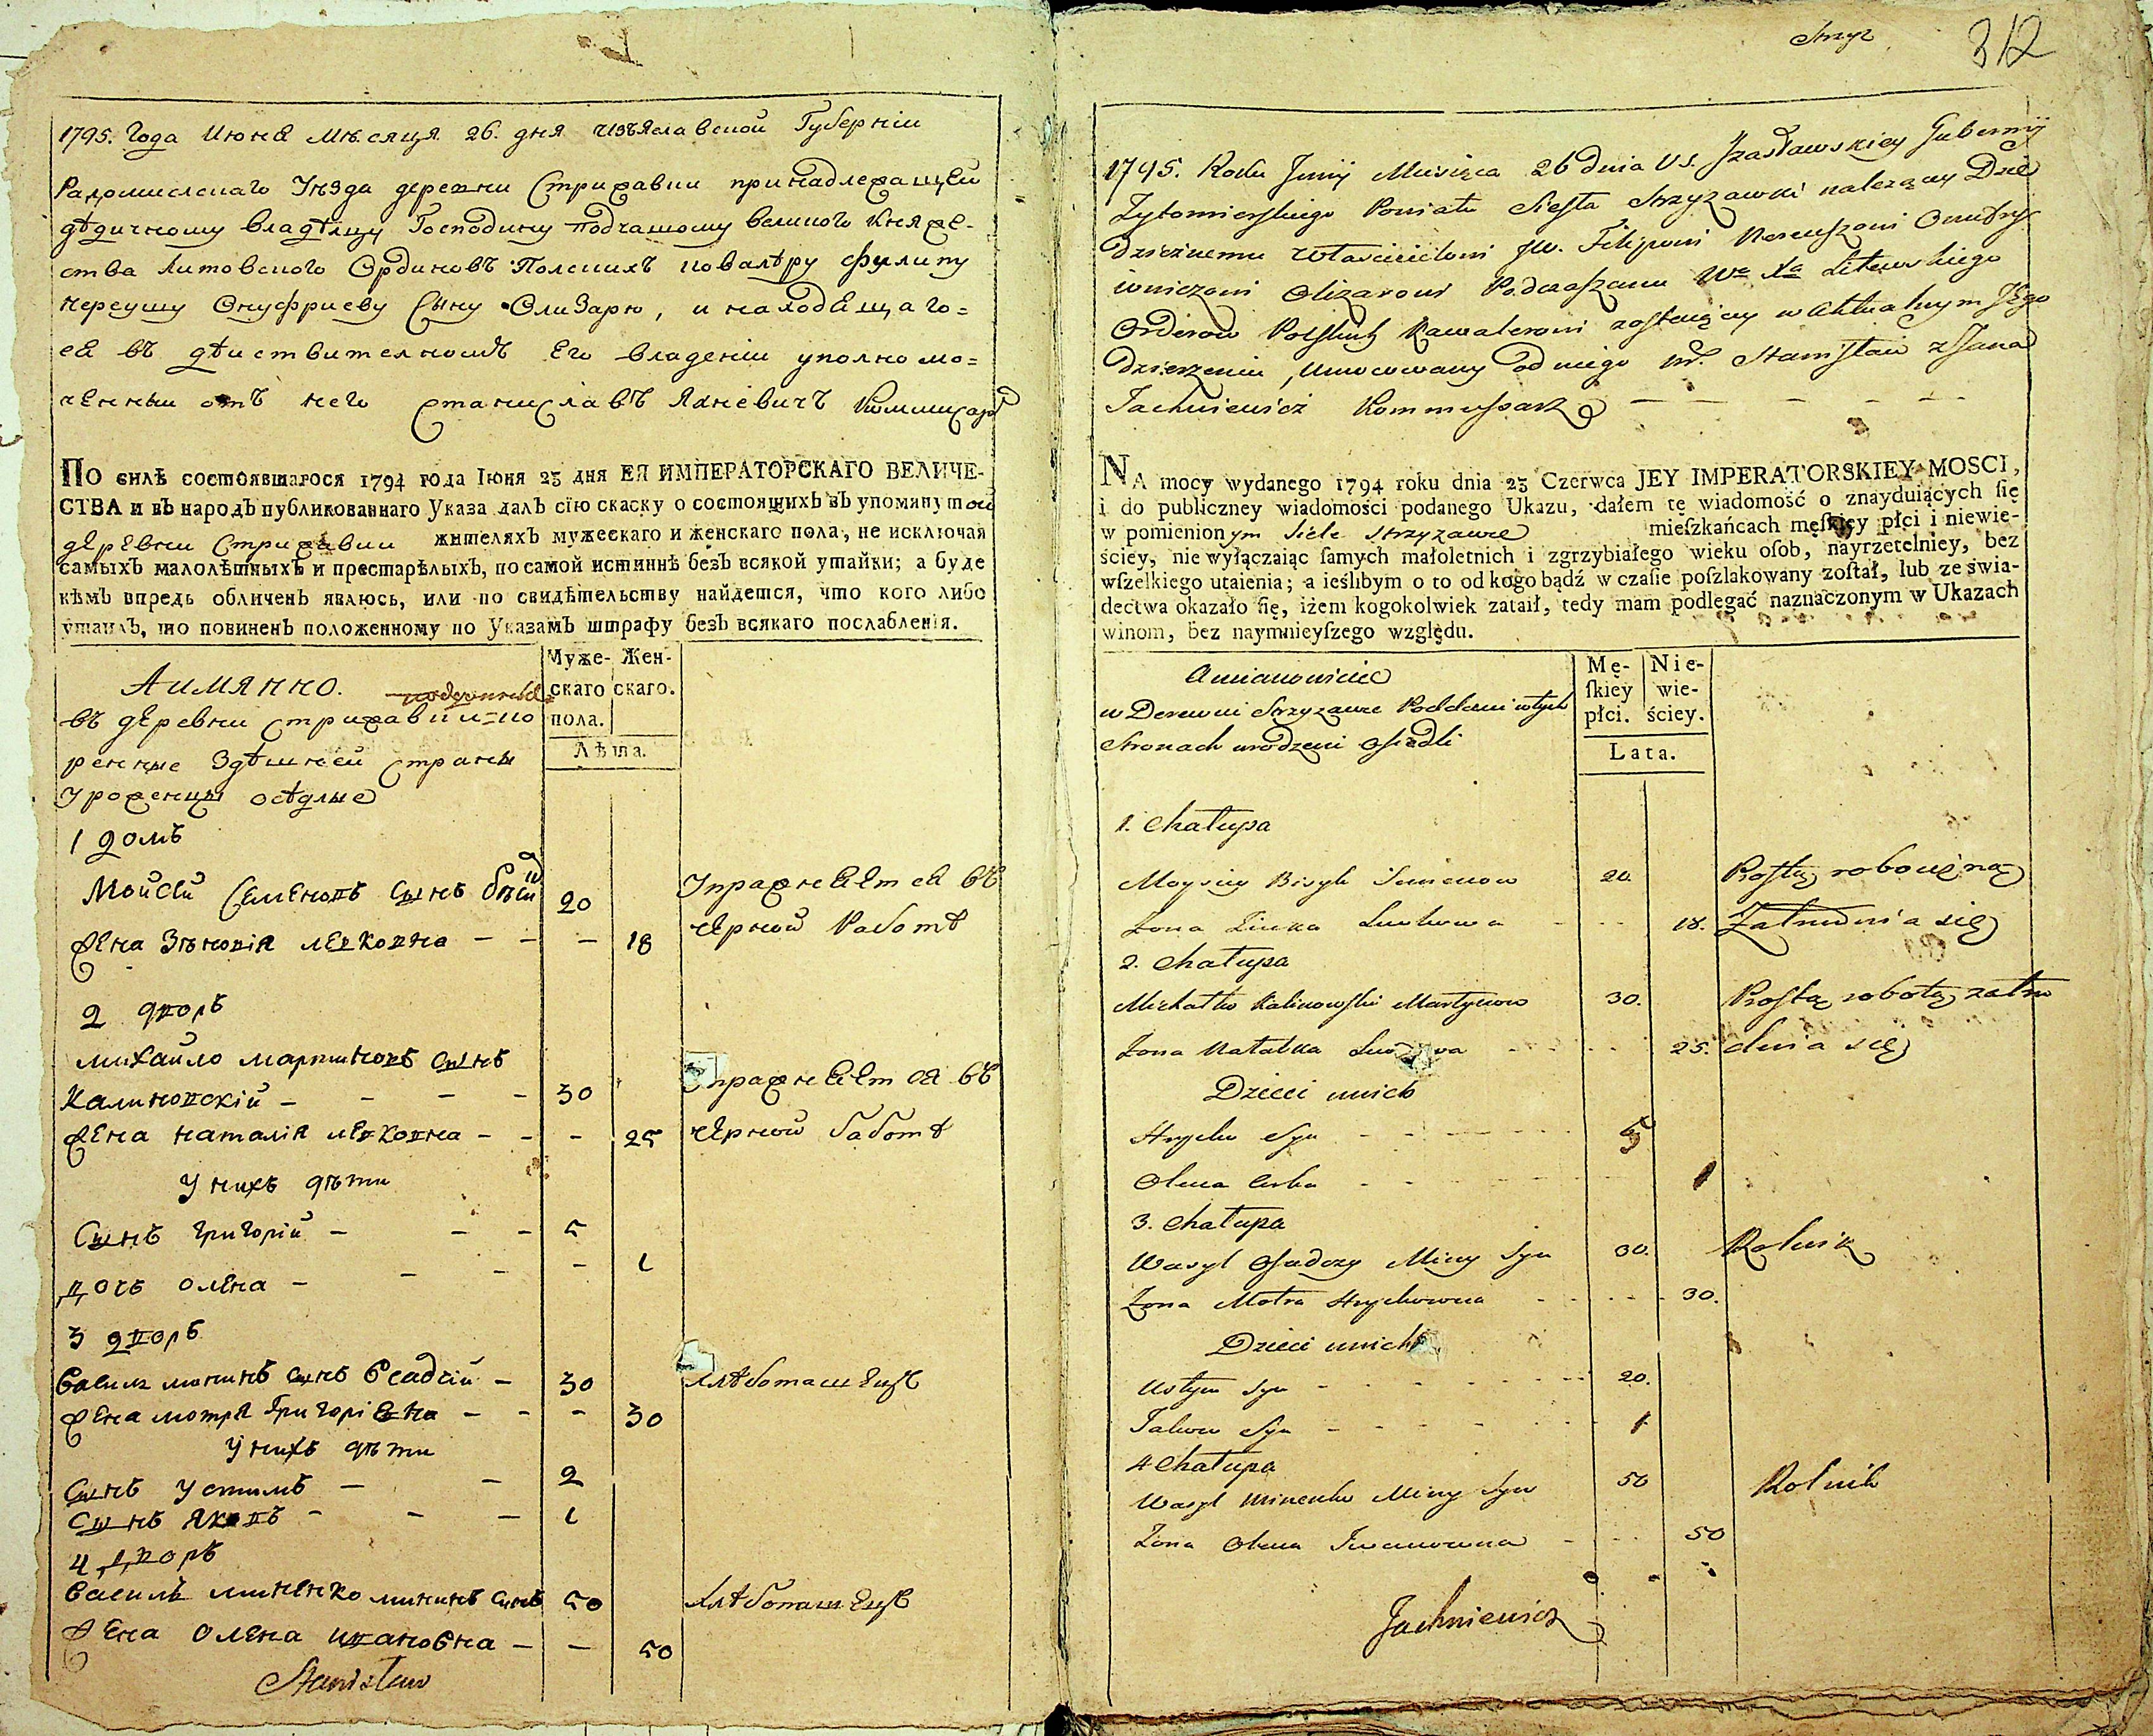 1795. Года Июня мѣсяця 26. дня Изъяславской Губерніи
Радомислскаго Уѣзда деревни Стрижавки принадлежащей
дѣдичному владѣлцу Господину подчашому великого княже-
ства Литовского Ординовъ Полскихъ ковалѣру Филипу
Нереушу Онуфриеву сыну Олизарю, и находящаго=
ся въ дѣиствителномъ Его владении уполномо=
ченныи отъ него Станиславъ Яхневичъ Коммисаръ
По силѣ состоявшагося 1794 года Іюня 23 дня ЕЯ ИМПЕРАТОРСКАГО ВЕЛИЧЕ-
СТВА и въ народъ публикованнаго Указа далъ сїю скаску о состоящихъ въ упомянутой
деревни Стрижавки жителяхъ мужескаго и женскаго пола, не исключая
самыхъ малолѣтныхъ и престарѣлыхъ, по самой истиннѣ безъ всякой утайки; а буде
кѣмъ впредь обличенъ явлюсь, или по свидѣтельству найдется, что кого либо
утаилъ, то повиненъ положенному по Указамъ штрафу безъ всякаго послабленія.
Муже- Жен-
скаго скаго.
пола.
Лѣта.
А имянно.
въ деревни Стрижавки =по
ренные здѣшней страны
уроженцы осѣдлые
1 домъ
Мойсей Семеновъ сынъ 20 Упражняется въ
жена Зѣновія левковна - - - 18 черной Работѣ
2 дворъ
михайло мартиновъ сынъ
Калиновскій - - - - 30 Упражняется въ
жена наталія левковна - - - 25 черной работѣ
у нихъ дѣти
Сынъ григорій - - - 5
дочь олена - - - - 1
3 дворъ
Василь мининъ сынъ Осадчій - 30 хлѣбопашецъ
жена мотря григоріевна - - - 30
у нихъ дѣти
Сынъ устимъ - - 2
Сынъ яковъ - - - 1
4 дворъ
Василь миненко мининъ сынъ 50 хлѣбопашецъ
жена олена ивановна - - 50
Stanisław
Stryz 312
1795. Roku Junij Miesiąca 26 dnia V.S. Jzasławskiey Gubernij
Żytomierskiego Powiatu Sieła Stryzawki należącey Dzie
dzicznemu Właścicielowi JW. Filipowi Nereuszowi Onufry
iowiczowi Olizarowi Podczaszemu Wo Xa Litewskiego
Orderow Polskich Kawalerowi zostaiącey w aktualnym Jego
dzierżeniu, umocowany od niego Stanisław z Jana
Jachniewicz Kommissarz - - - - - -
NA mocy wydanego 1794 roku dnia 23 Czerwca JEY IMPERATORSKIEY MOSCI,
i do publiczney wiadomości podanego Ukazu, dałem tę wiadomość o znayduiących ſię
w pomienionym Siele Stryzawce mieſzkańcach męſkiey płci i niewie-
ściey, nie wyłączaiąc ſamych małoletnich i zgrzybiałego wieku oſob, nayrzetelniey, bez
wſzelkiego utaienia; a ieślibym o to od kogo bądź w czaſie poſzlakowany zoſtał, lub ze świa-
dectwa okazało ſię, iżem kogokolwiek zataił, tedy mam podlegać naznaczonym w Ukazach
winom, bez naymnieyſzego względu.
Mę- Nie-
ſkiey wie-
płci. ściey.
Lata.
a mianowicie
w Derewni Stryzawce Poddani w tych
Stronach urodzeni osiedli
1. Chałupa
Moysiey Semenow 20. Prostą robocizną
Zona Zinka Lewkowa - - - 18. Zatrudnia się
2. Chałupa
Michałko Kalinowski Martynow 30. Prostą robotą zatru
Zona Natalka - - - 25. dnia się
Dzieci u nich
Hryćko Syn - - - - 5
Olena Corka - - - - 1
3. Chałupa
Wasyl Osadczy Miny Syn 30. Rolnik
Zona Motra Hryckowna - - - - 30.
Dzieci u nich
Ustym Syn - - - - 20.
Jakow Syn - - - - 1
4 Chałupa
Wasyl Minenko Miny Syn 50 Rolnik
Zona Olena Jwanowna - - - 50
Jachniewicz